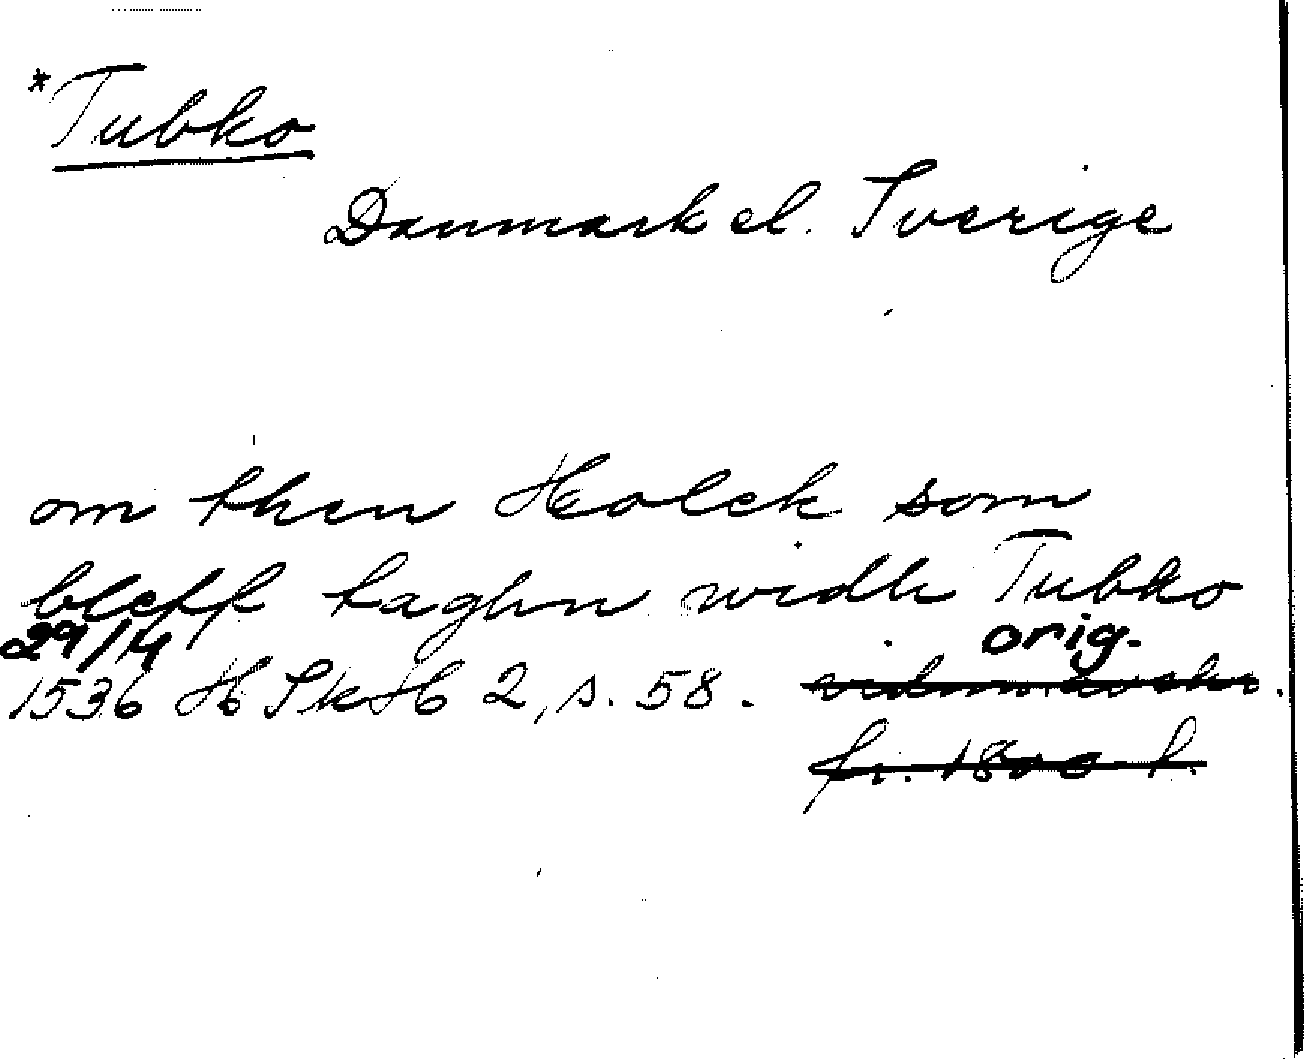 *Tubko
Danmark el. Sverige
om then Holck som
bleff taghn widh Tubko
29/4 orig.
1536 HSkH 2, s. 58.
fr. 1800 t.